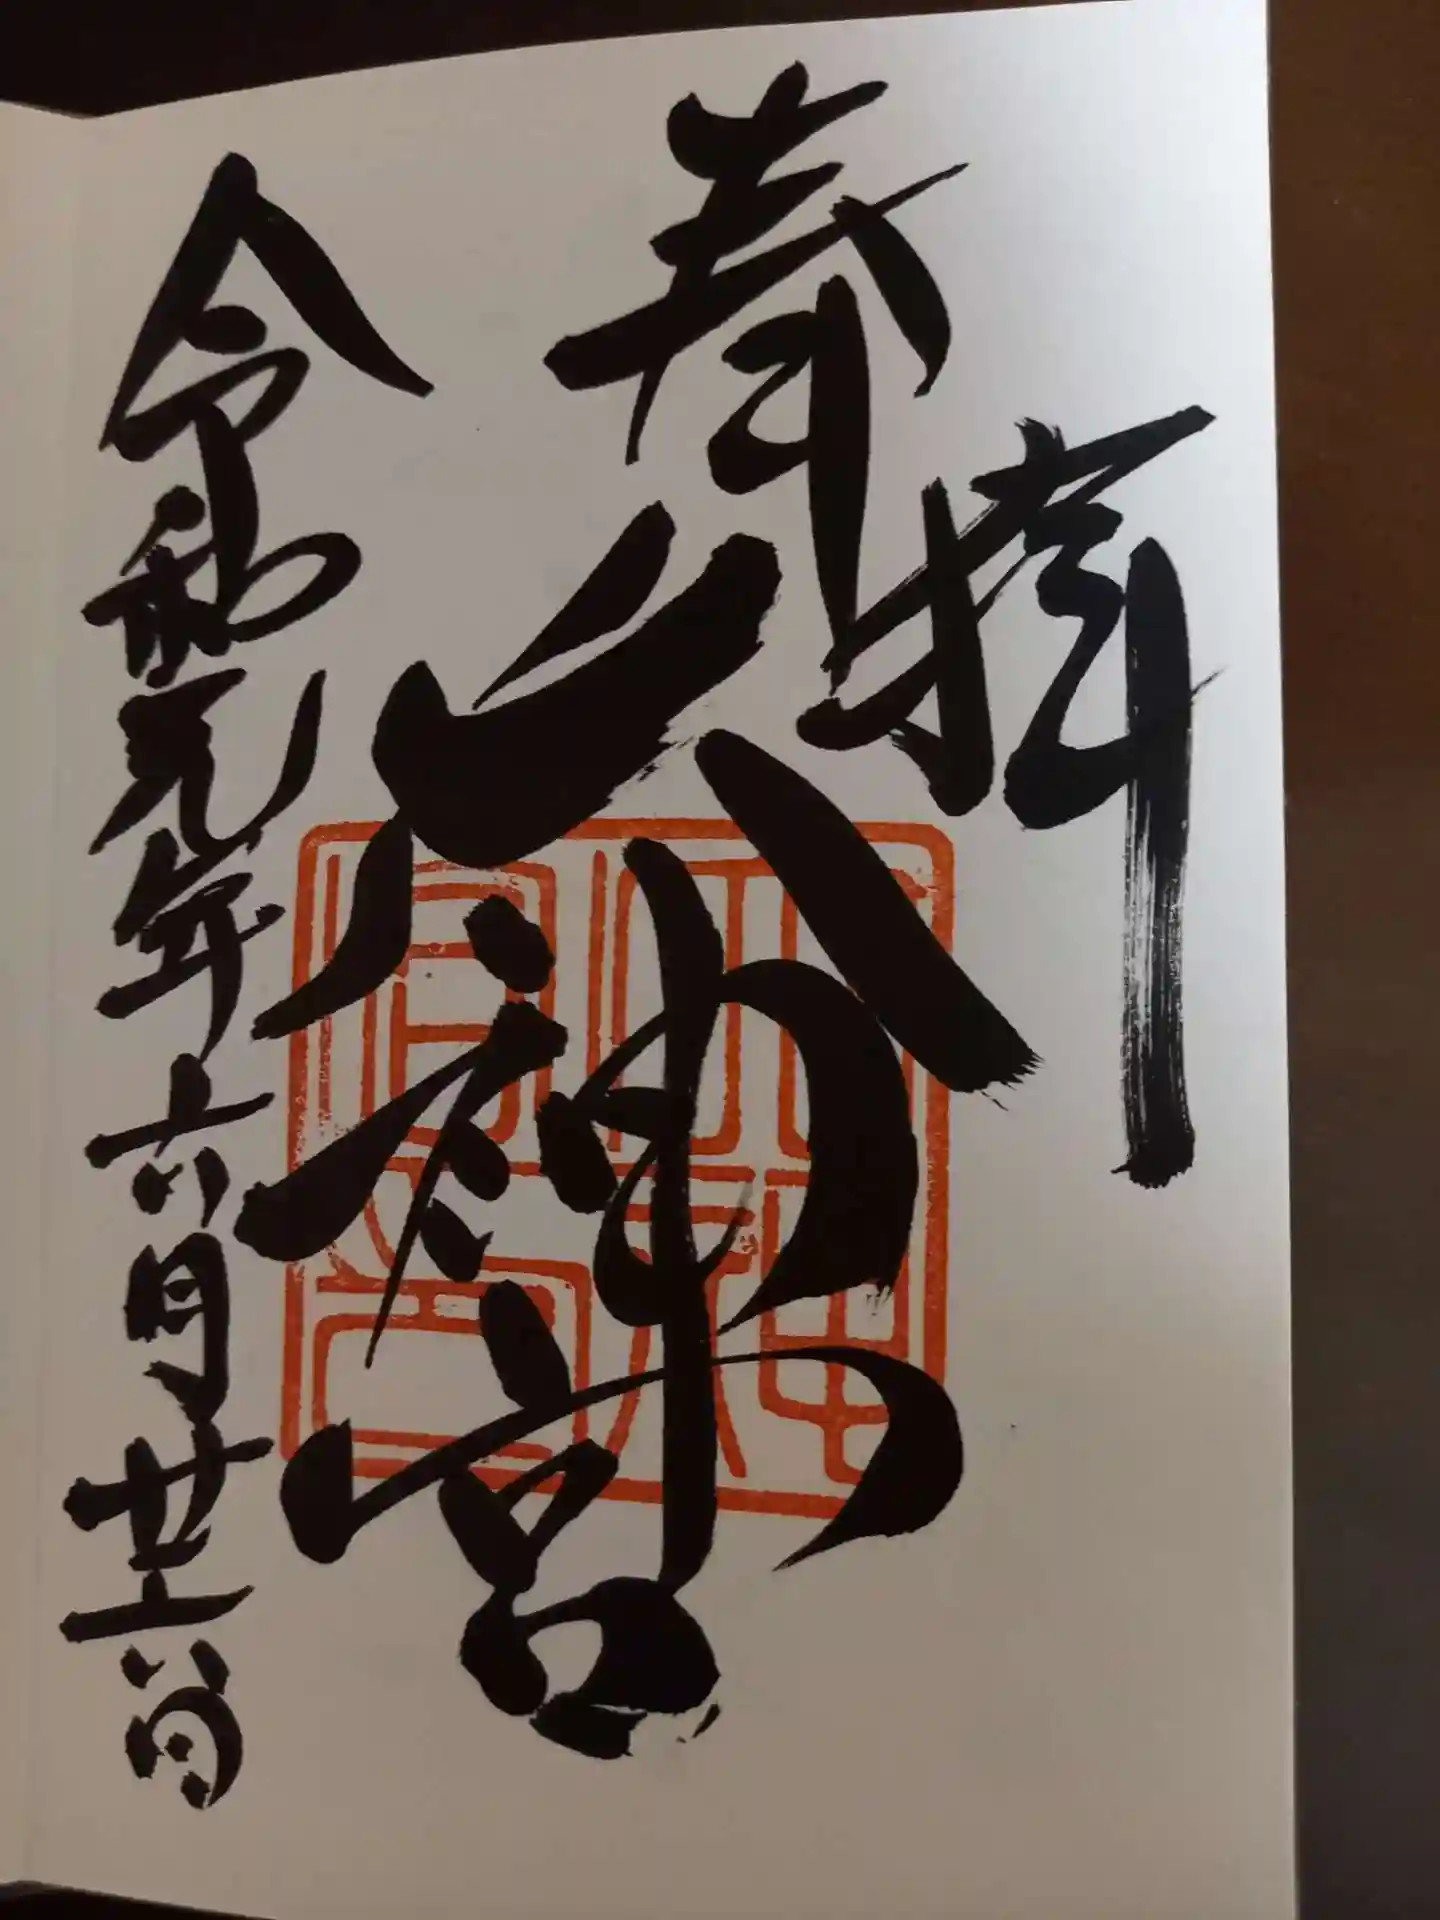 奉拝
大神宮
令和元年六月廿六日